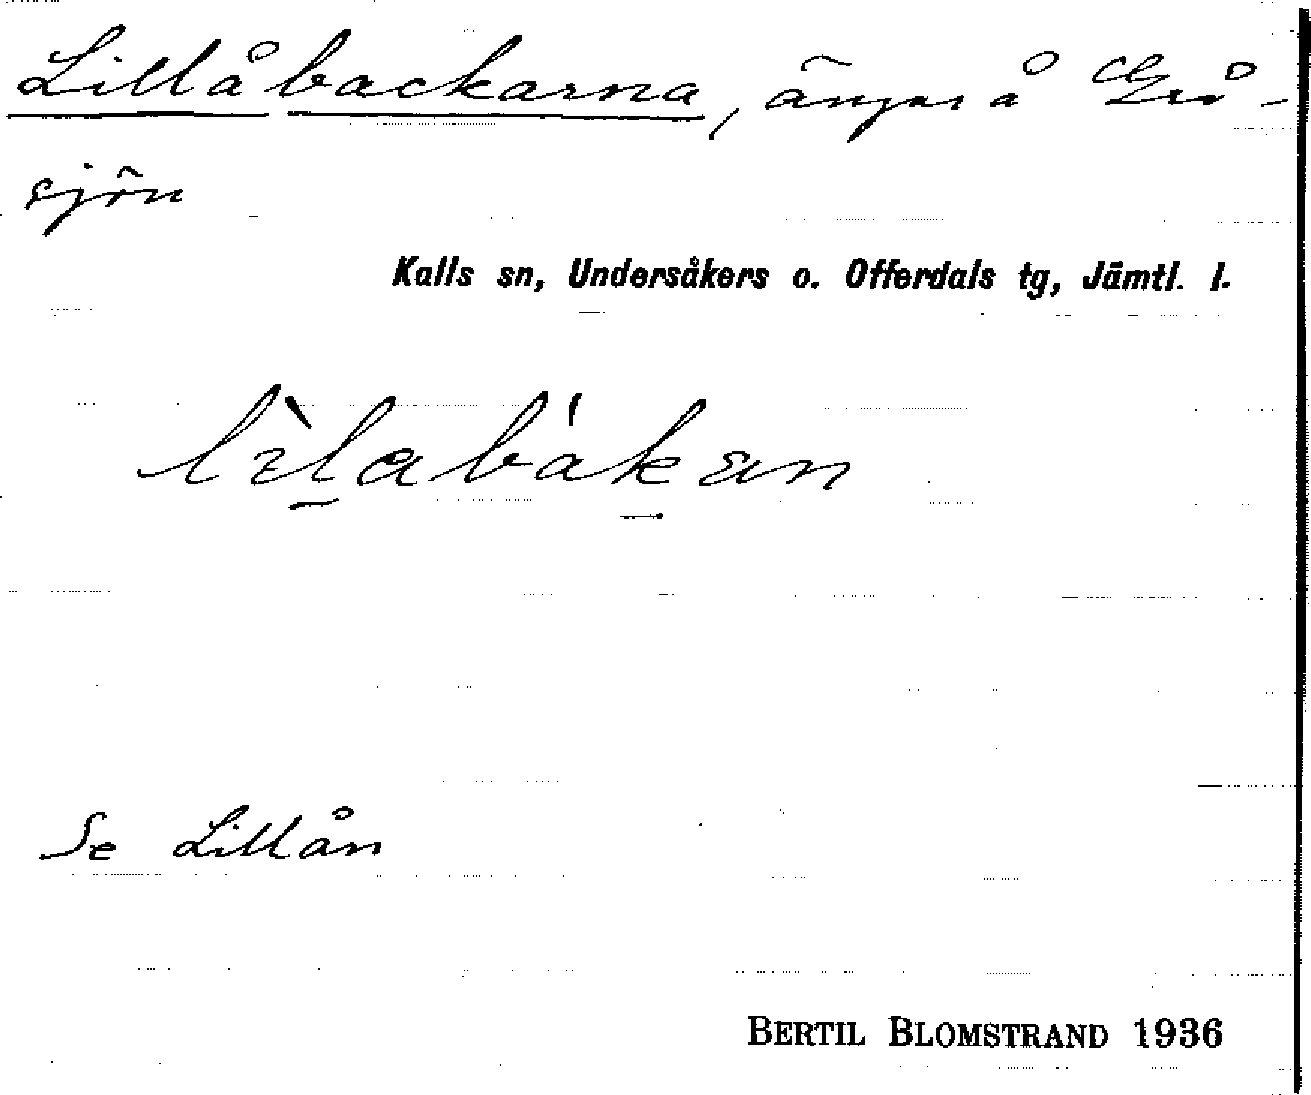 Lillåbackarna, ängar å Grå-
sjön
Kalls sn, Undersåkers o. Offerdals tg, Jämtl. l.
Se Lillån
BERTIL BLOMSTRAND 1936